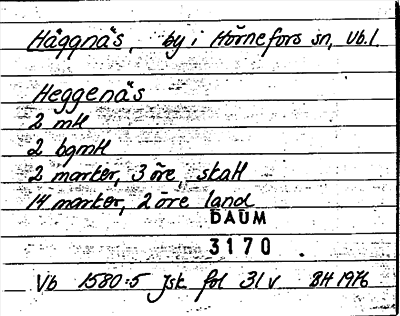 Häggnäs, by i Hörnefors sn, Vb. l
Heggenäs
2 mtl
2 bgmtl
2 marker, 3 öre skatt
14 marker, 2 öre land
DAUM
3170
Vb 1580:5 Jsk fol 31 v BH 1976